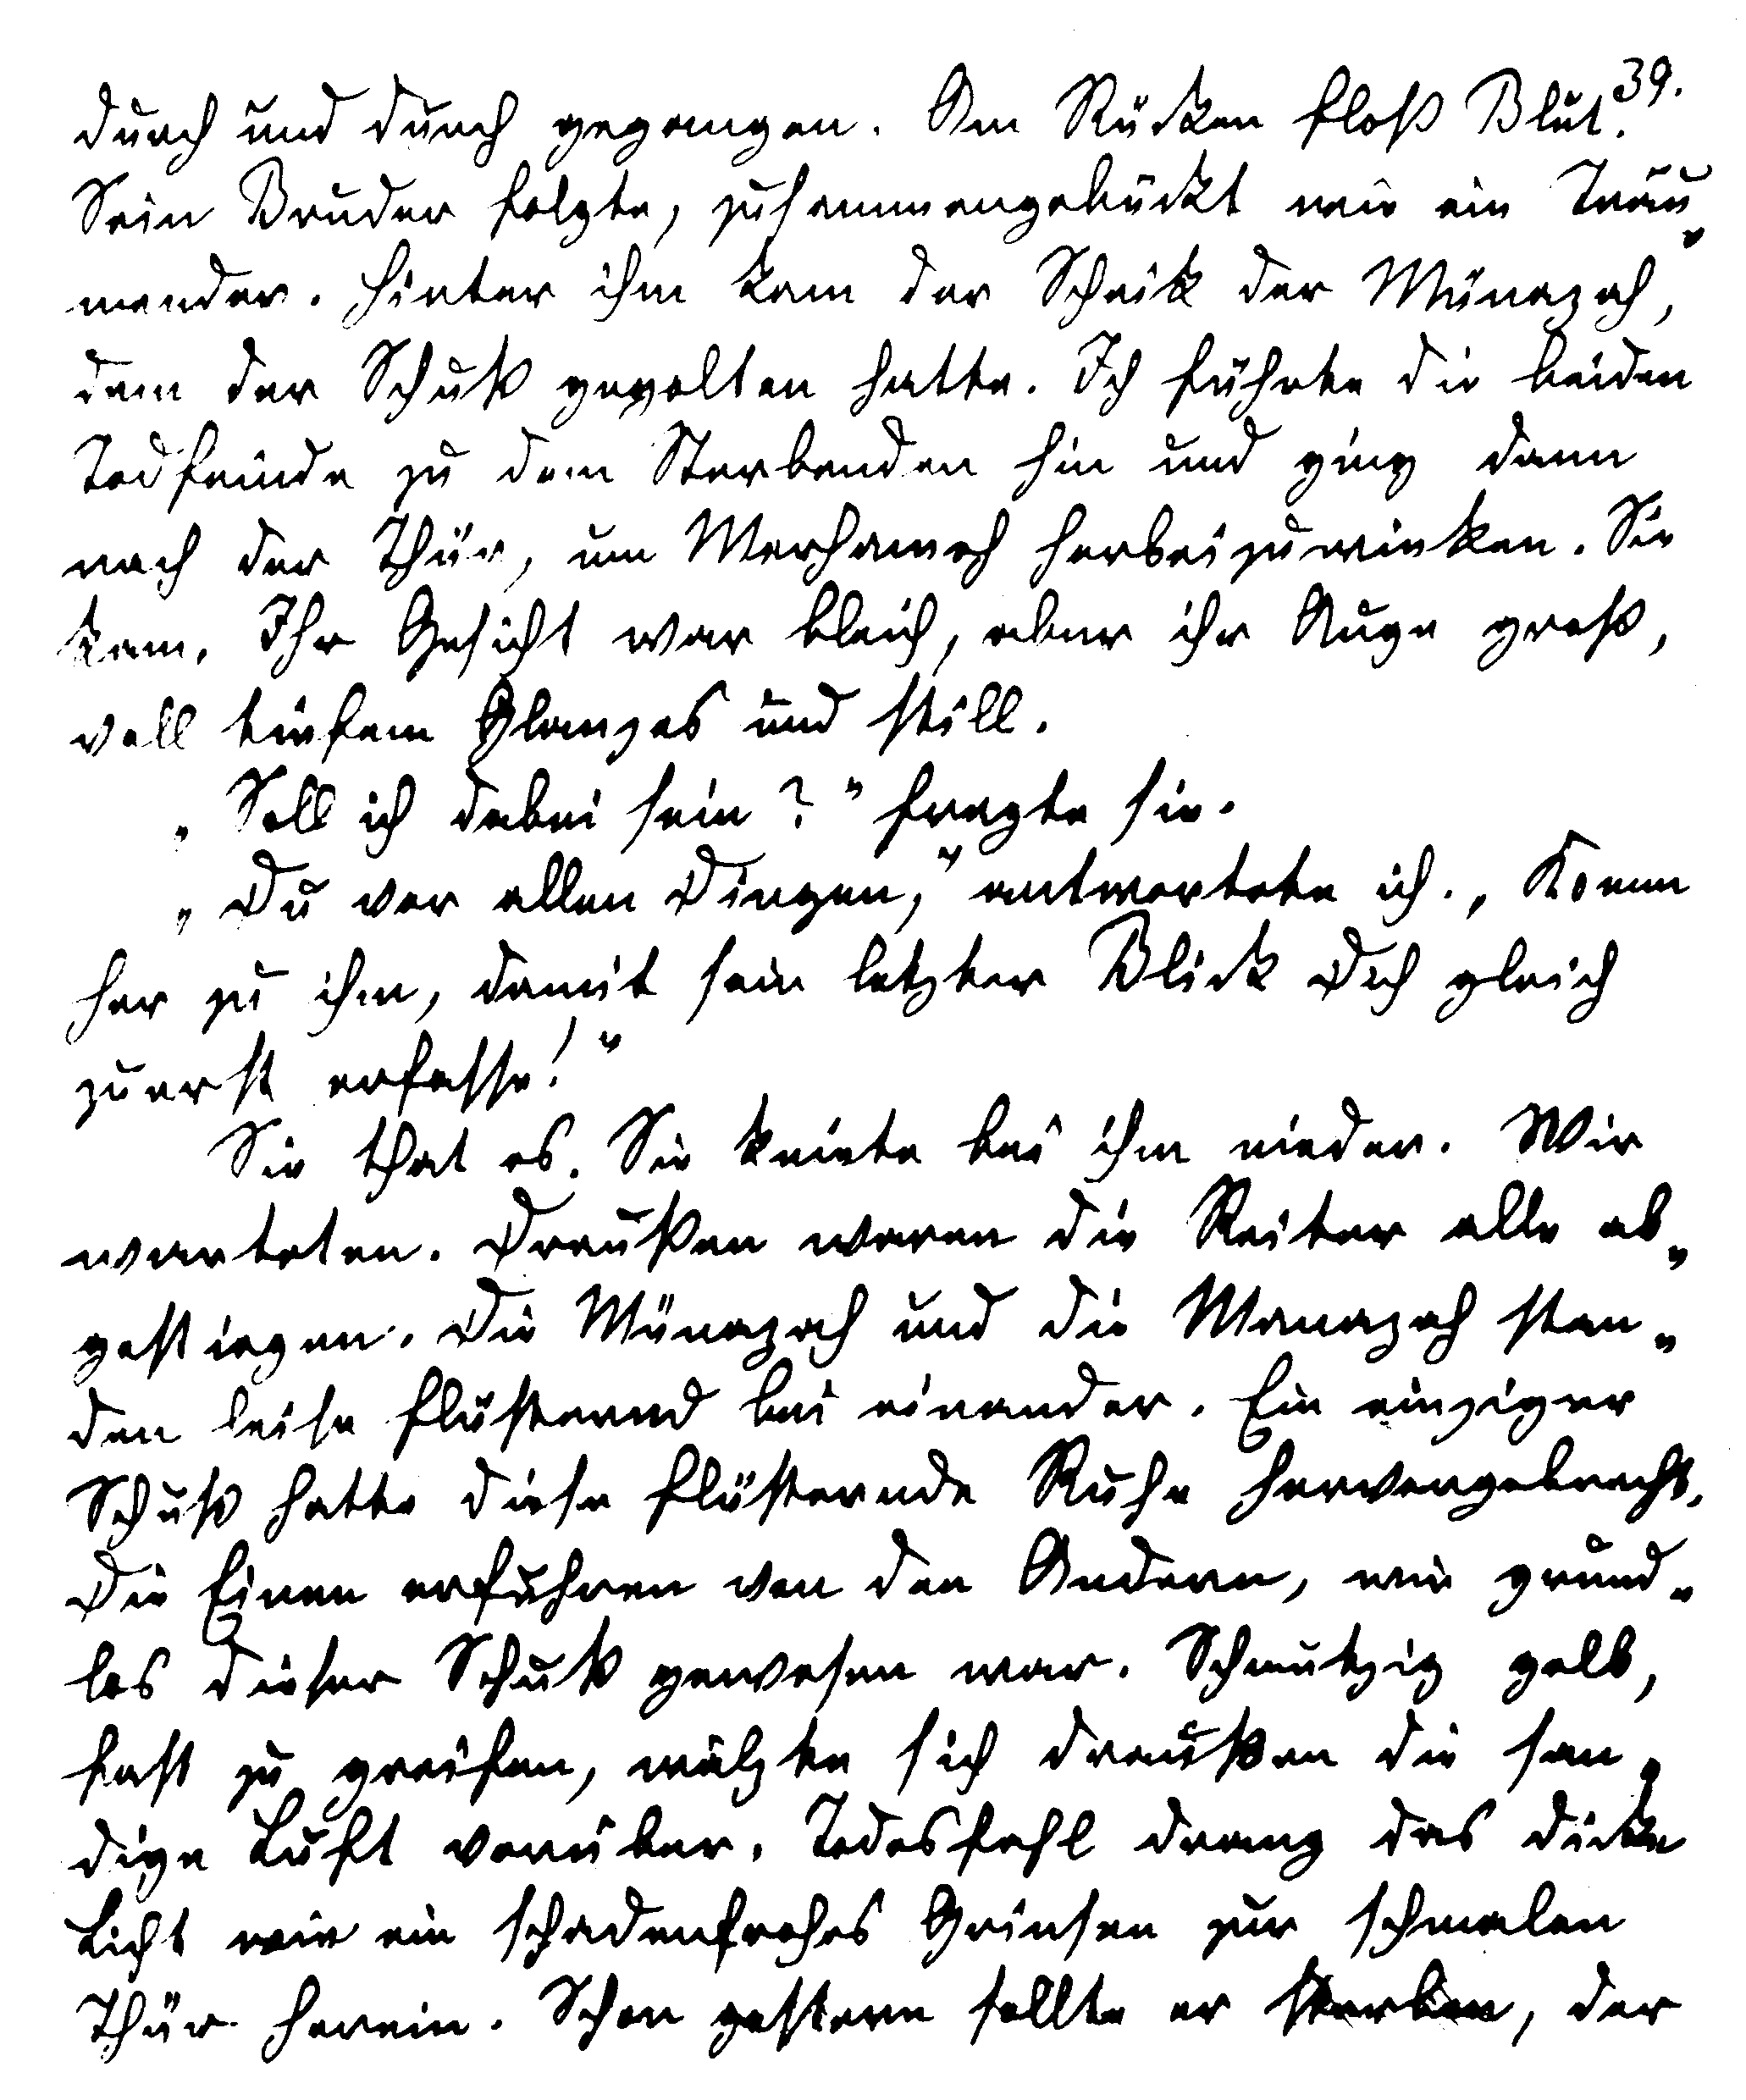 39.
durch und durch gegangen. Am Rücken floß Blut.
Sein Bruder folgte, zusammengebückt wie ein Träu-
mender. Hinter ihm kam der Scheik der Münazah,
dem der Schuß gegolten hatte. Ich führte die beiden
Todfeinde zu dem Sterbenden hin und ging dann
nach der Thür, um Merhameh herbeizuwinken. Sie
kam. Ihr Gesicht war bleich, aber ihr Auge groß,
voll tiefem Glanzes und still.
„Soll ich dabei sein?" fragte sie.
„Du vor allen Dingen," antwortete ich. „Komm
her zu ihm, damit sein letzter Blick Dich gleich
zuerst erfasse!"
Sie that es. Sie kniete bei ihm nieder. Wir
warteten. Draußen waren die Reiter alle ab-
gestiegen. Die Münazah und die Manazah stan-
den leise flüsternd bei einander. Ein einziger
Schuß hatte diese flüsternde Ruhe hervorgebracht.
Die Einen erfuhren von den Andern, wie grund-
los dieser Schuß gewesen war. Schmutzig gelb,
fast zu greifen, wälzte sich draußen die san-
dige Luft vorüber. Todesfahl drang das dicke
Licht wie ein schadenfrohes Grinsen zur schmalen
Thür herein. Schon gestern sollte er sterben, der